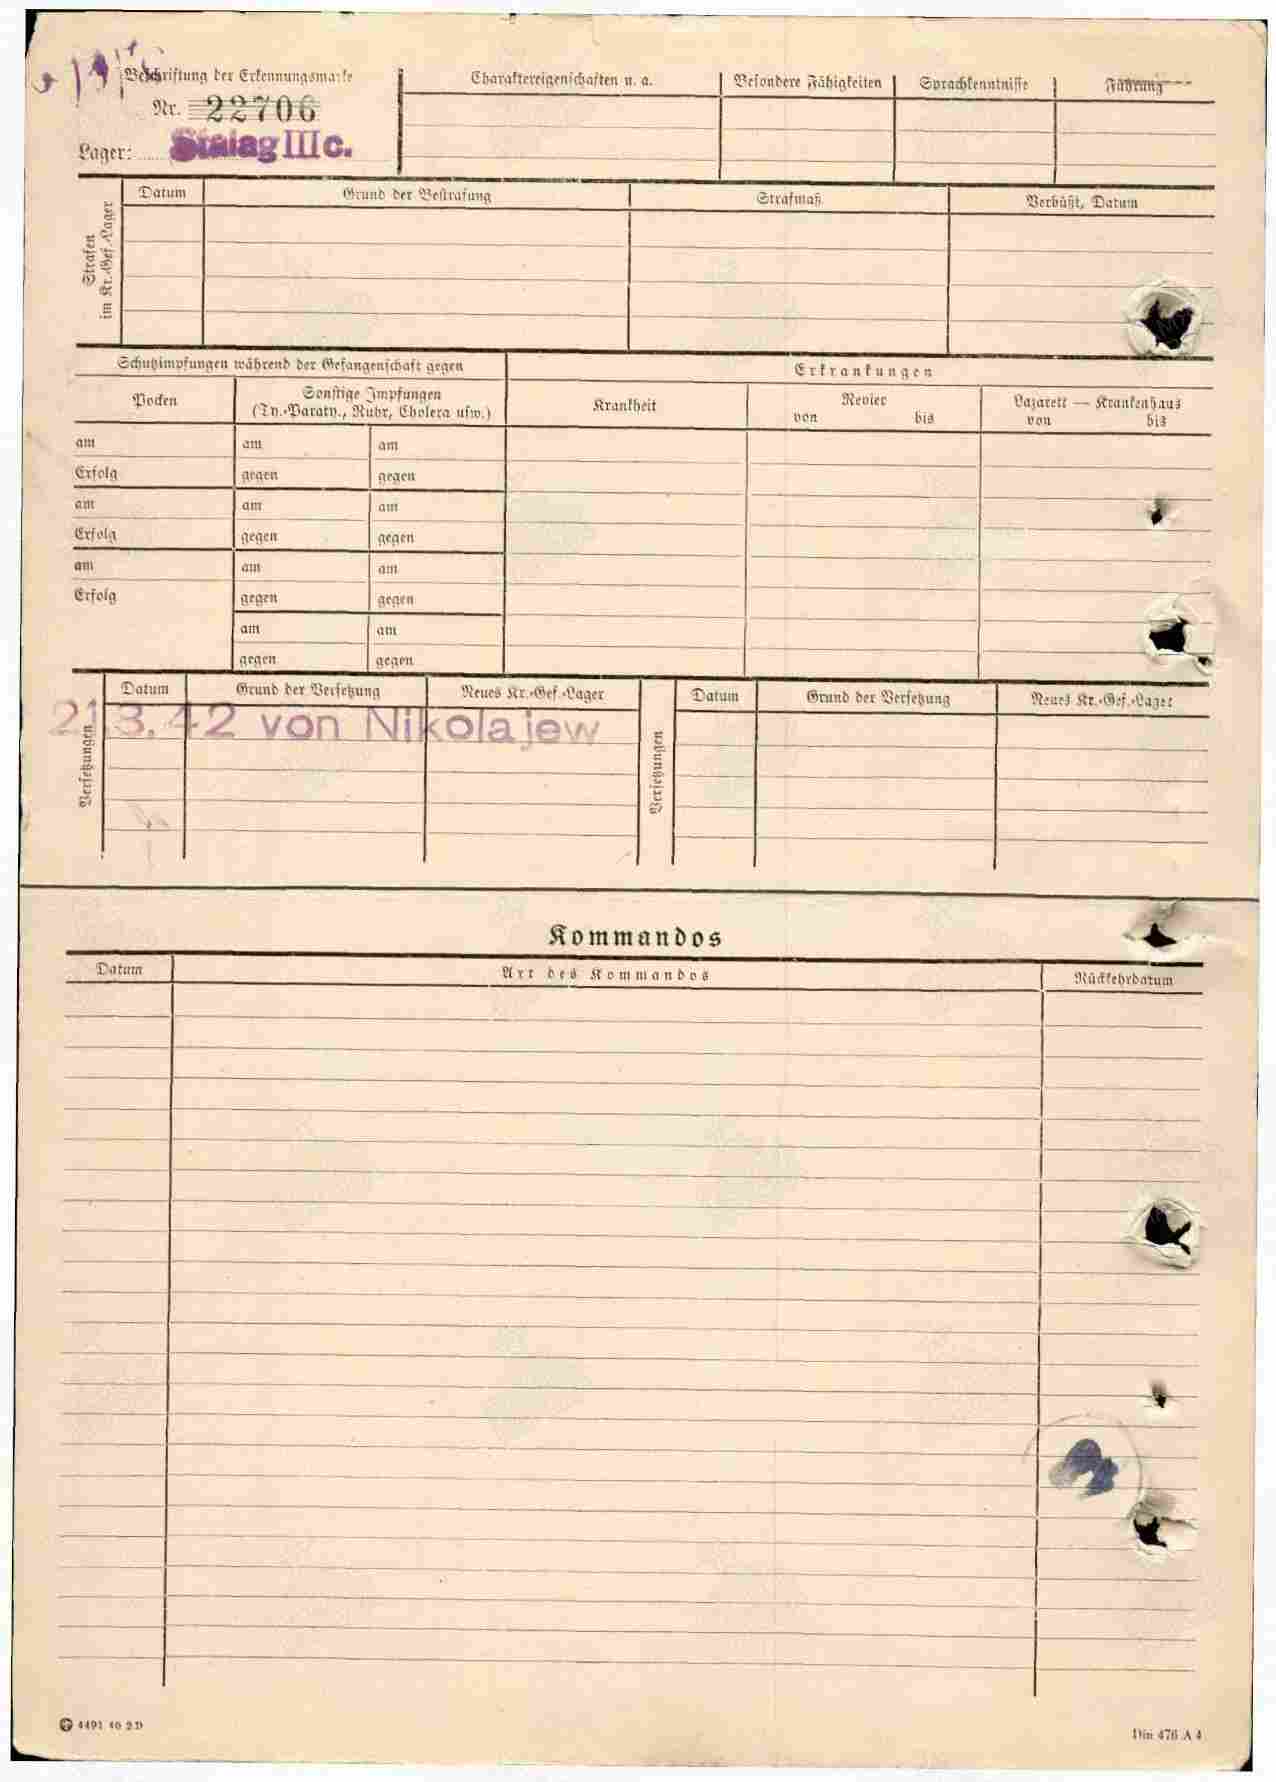 Beschriftung der Erkennungsmarke
Nr. 22706
Lager: Stalag III c.
Charaktereigenschaften u. a.
Besondere Fähigkeiten
Sprachkenntnisse
Führung
Strafen
im Kr.-Gef.-Lager
Datum
Grund der Bestrafung
Strafmaß
Verbüßt, Datum
Schutzimpfungen während der Gefangenschaft gegen
Erkrankungen
Pocken
Sonstige Impfungen
(Ty.-Paraty., Ruhr, Cholera usw.)
Krankheit
Revier
von bis
Lazarett — Krankenhaus
von bis
am am am
Erfolg gegen gegen
am am am
Erfolg gegen gegen
am am am
Erfolg gegen gegen
am am
gegen gegen
Versetzungen
Datum Grund der Versetzung Neues Kr.-Gef.-Lager
21.3.42 von Nikolajew
Versetzungen
Datum Grund der Versetzung Neues Kr.-Gef.-Lager
Kommandos
Datum Art des Kommandos Rückkehrdatum
4491 40 2 D
Din 476 A 4